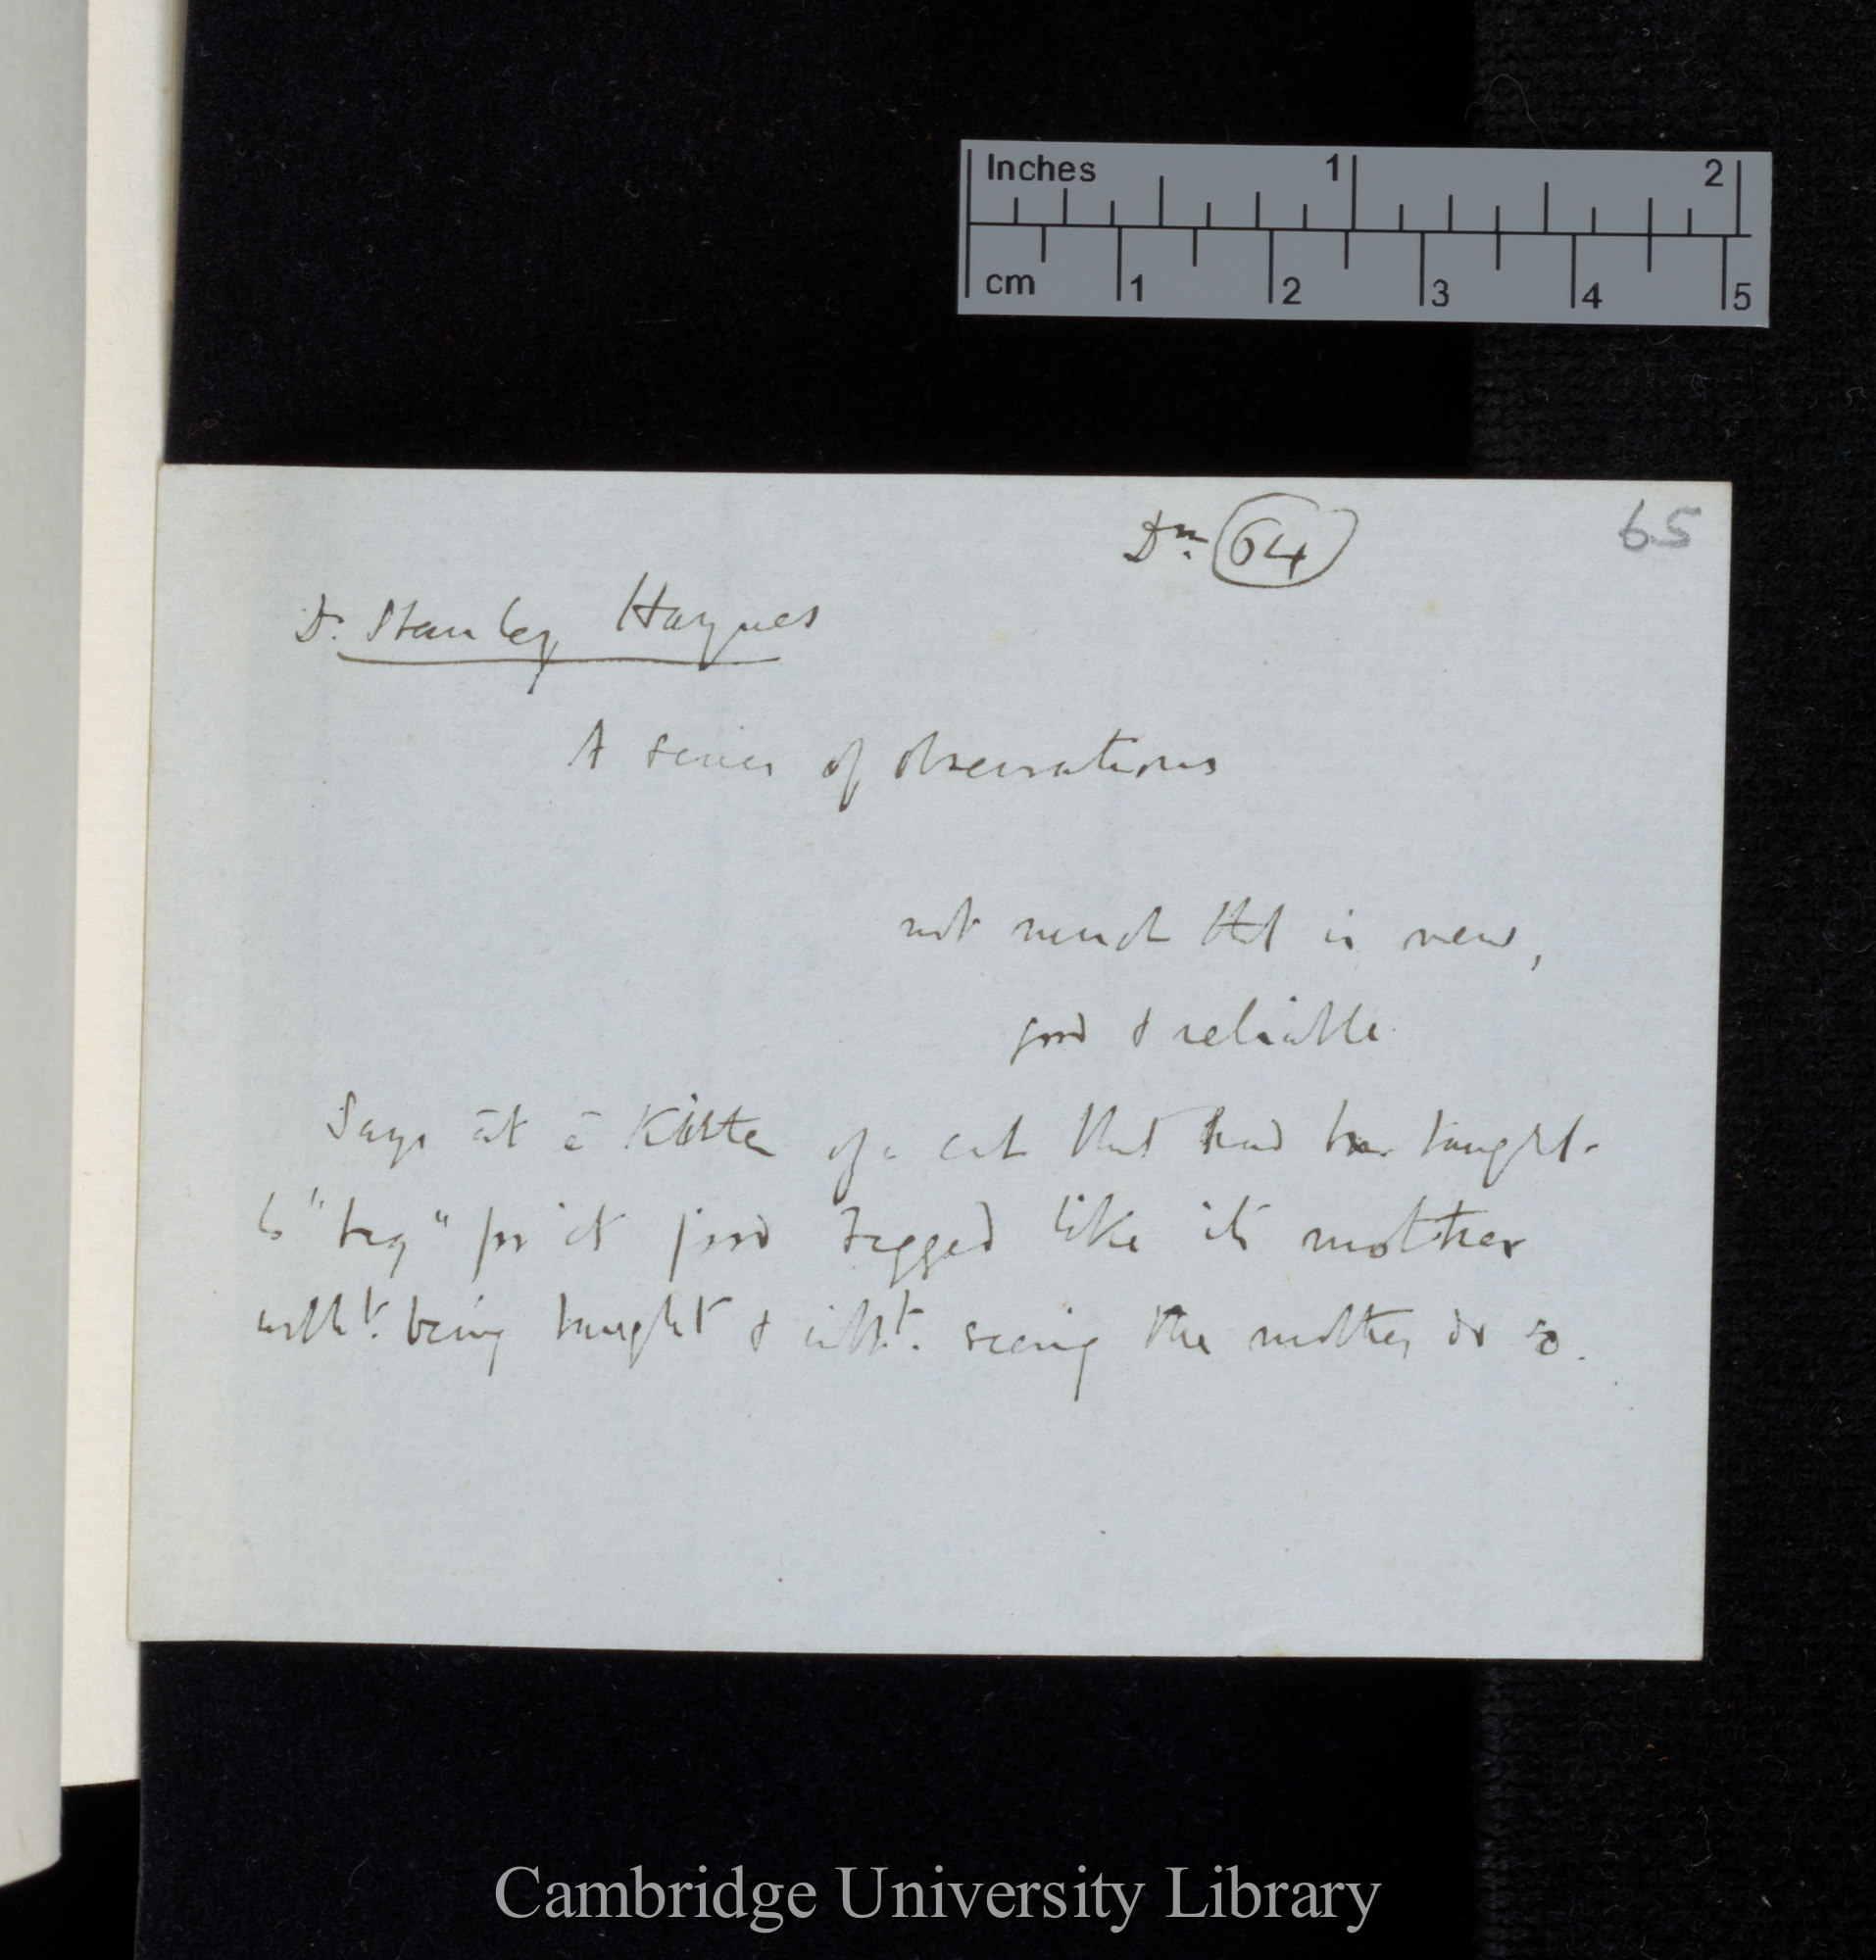 Inches 1 2
cm 1 2 3 4 5
Dn. 64 65
Dr. Stanley Haynes
A series of observations
not much that is new,
good & reliable
Says āt ē Kitten of a cat that had been taught
to "beg" for it food begged like its mother
witht. being taught & witht. seeing the mother do so.
Cambridge University Library